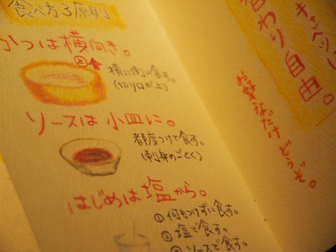 食べ方3原則
かつは横向き。
横に倒し食す。
(切り口が上)
ソースは小皿に。
都度つけて食す。
(刺身のごとく)
はじめは塩から。
①何もつけずに食す。
②塩で食す。
③ソースで食す。
キャベツ
替わり自由。
お好きなだけどうぞ。